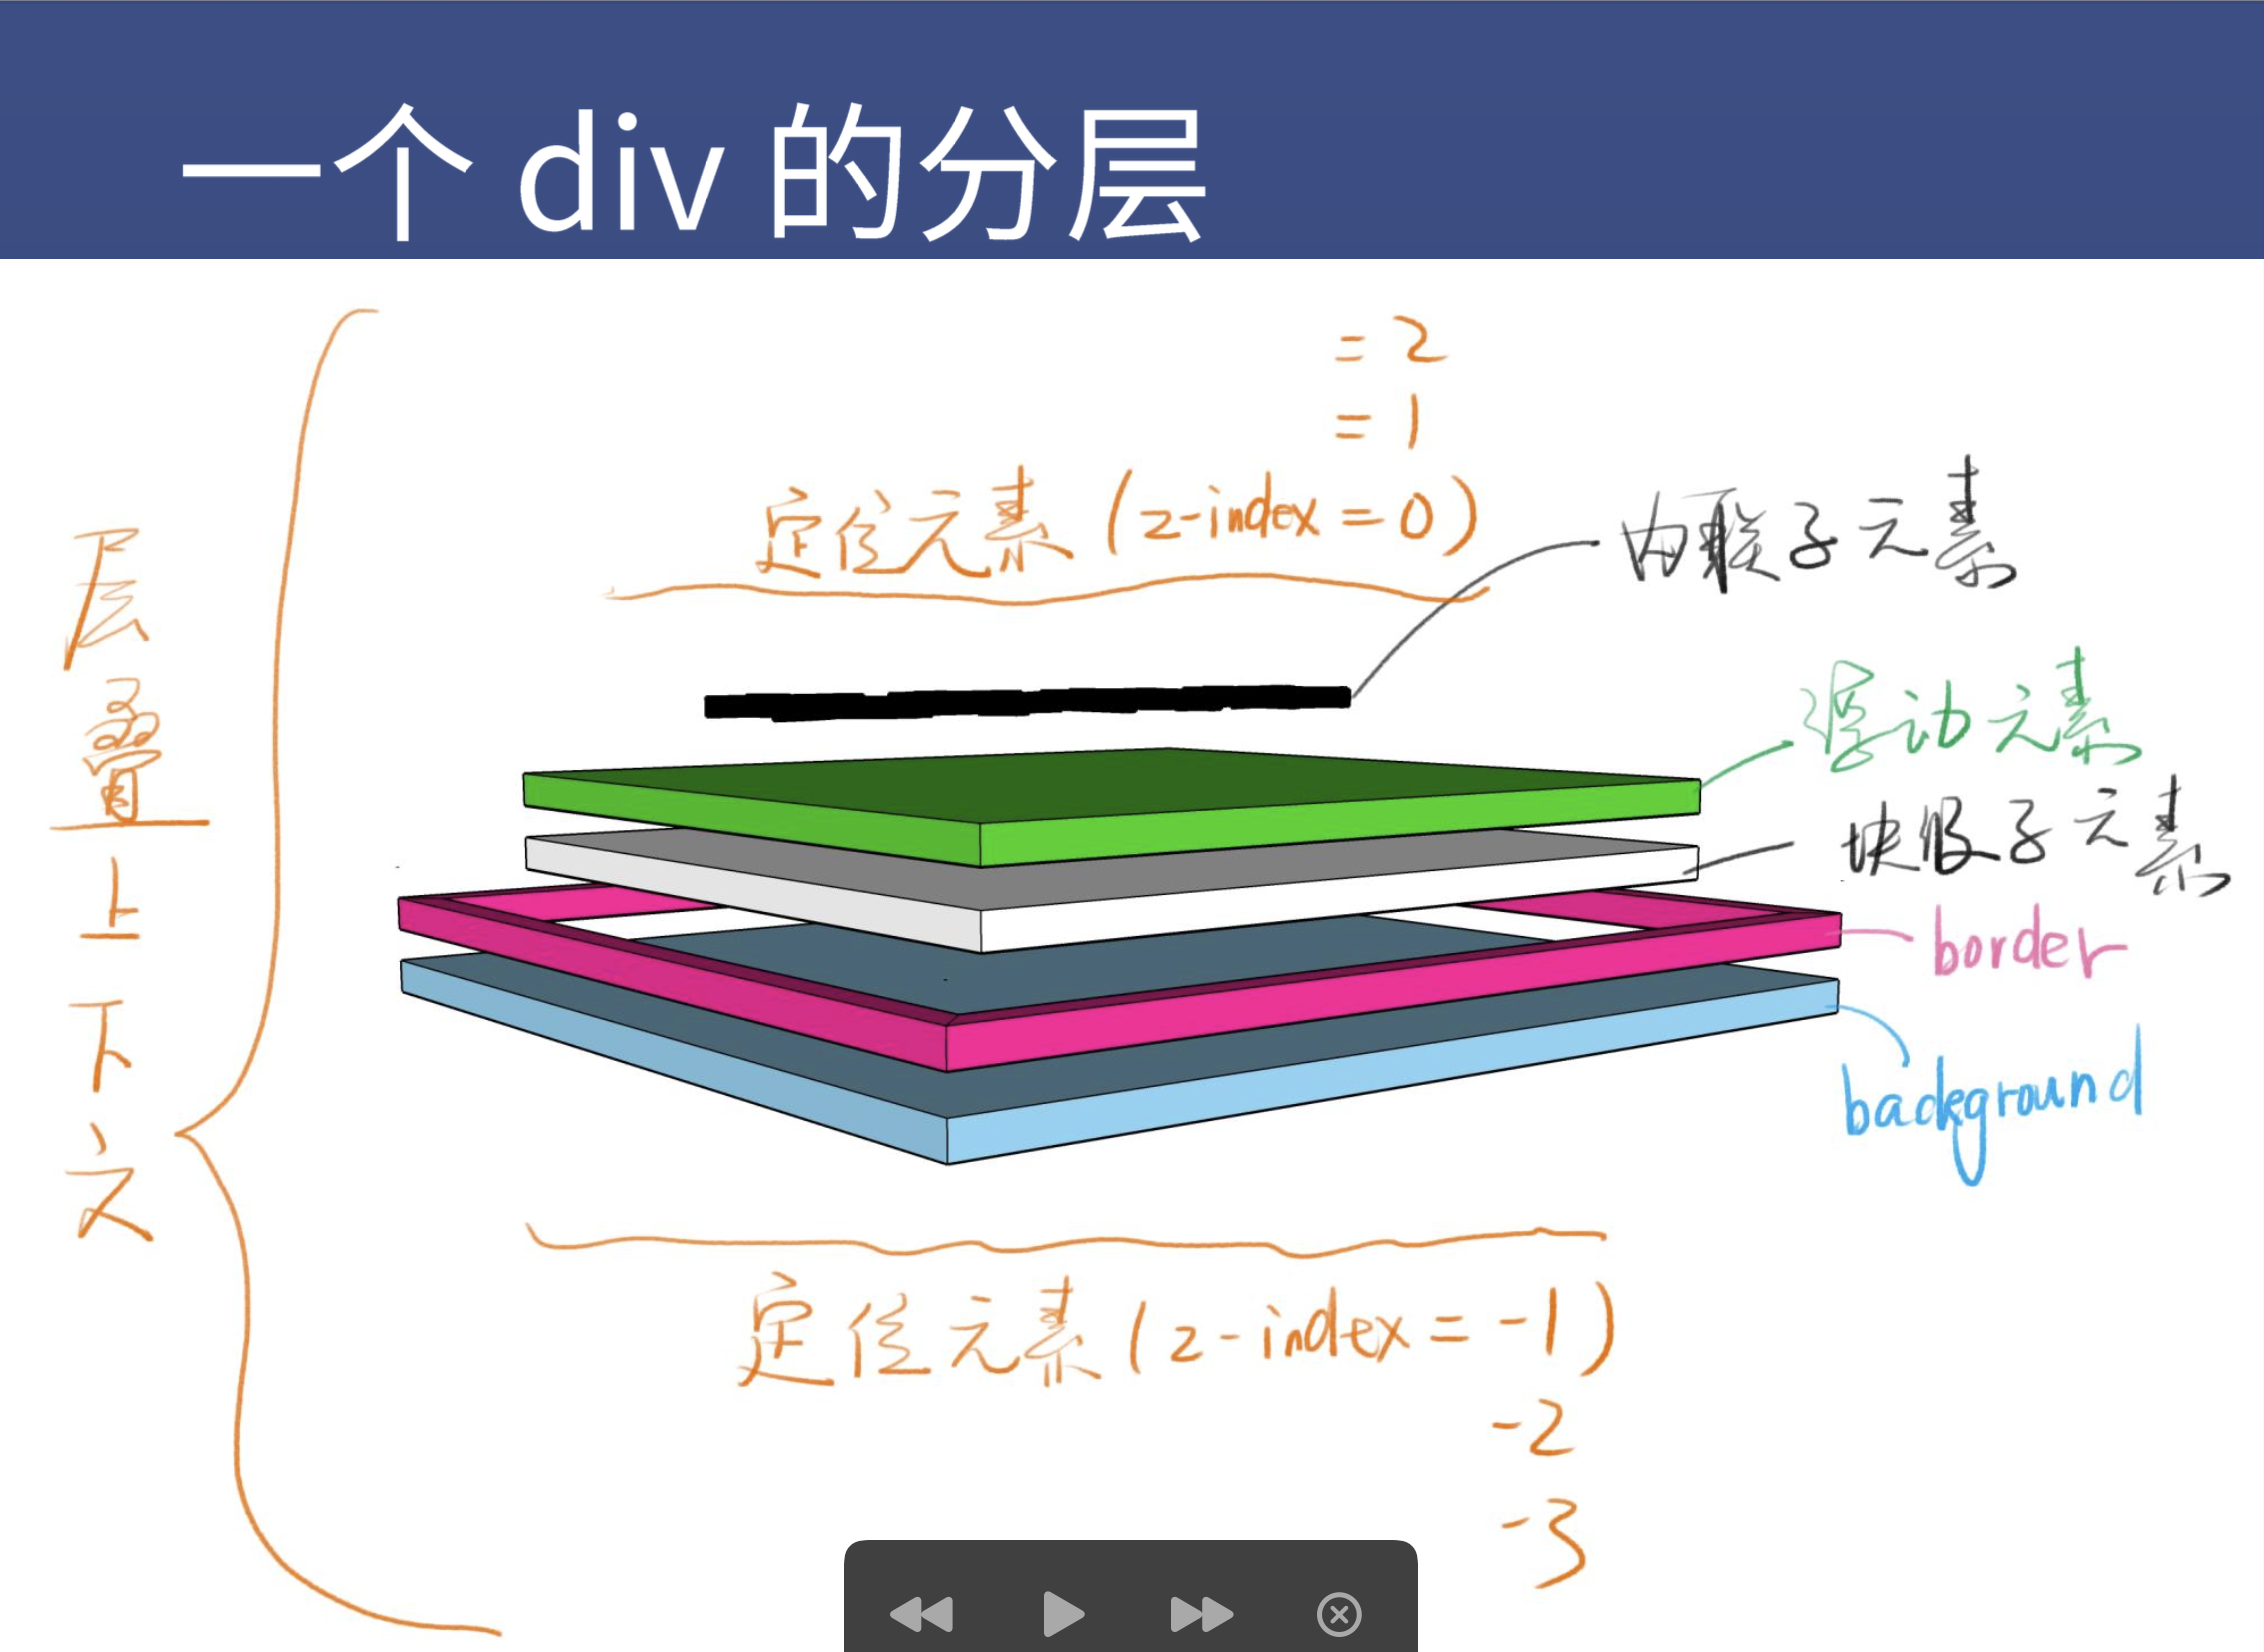 一个 div 的分层
= 2
= 1
定位元素 (z-index = 0)
内联子元素
浮动元素
块级子元素
border
background
层叠上下文
定位元素 (z-index = -1)
-2
-3